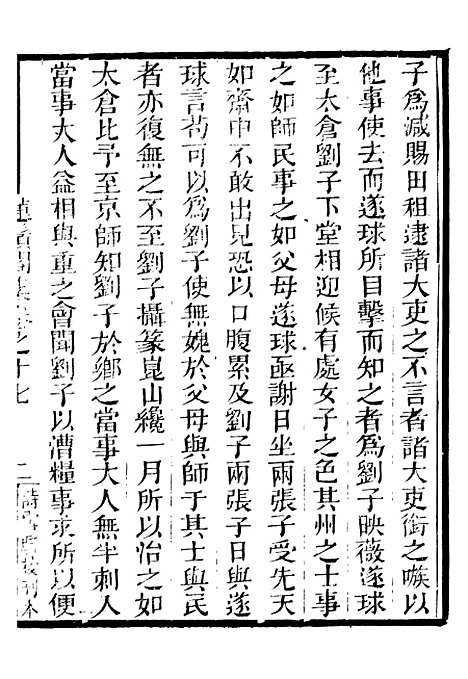 子爲減賜田租逮諸大吏之不言者諸大吏銜之嗾以
他事使去而遂球所目擊而知之者爲劉子映薇遂球
至太倉劉子下堂相迎候有處女子之色其州之士事
之如師民事之如父母遂球亟謝日坐兩張子受先天
如齋中不敢出見恐以口腹累及劉子兩張子日與遂
球言苟可以爲劉子使無媿於父母與師于其士與民
者亦復無之不至劉子攝篆崑山纔一月所以治之如
太倉比予至京師知劉子於鄉之當事大人無半刺人
當事大人益相與重之會聞劉子以漕糧事求所以便
蓮鬚閣集卷之十七
二